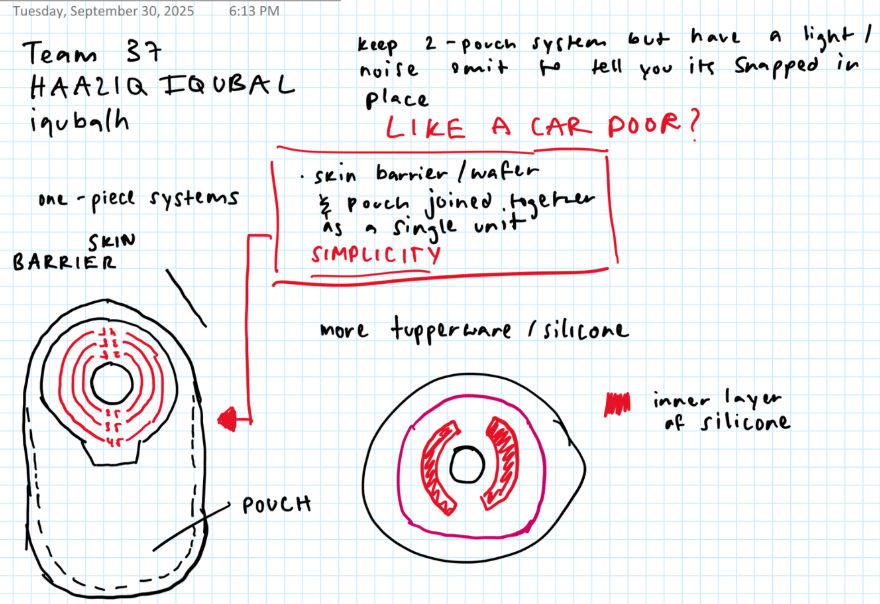 Tuesday, September 30, 2025 6:13 PM
Team 37
HAAZIQ IQUBAL
iqubalh
keep 2-pouch system but have a light/
noise omit to tell you its snapped in
place
LIKE A CAR DOOR?
· skin barrier/wafer
& pouch joined together
as a single unit
SIMPLICITY
one-piece systems
SKIN
BARRIER
more tupperware/silicone
inner layer
of silicone
POUCH